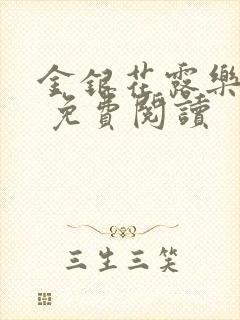 金銀花露樂
免費閱讀
三生三笑